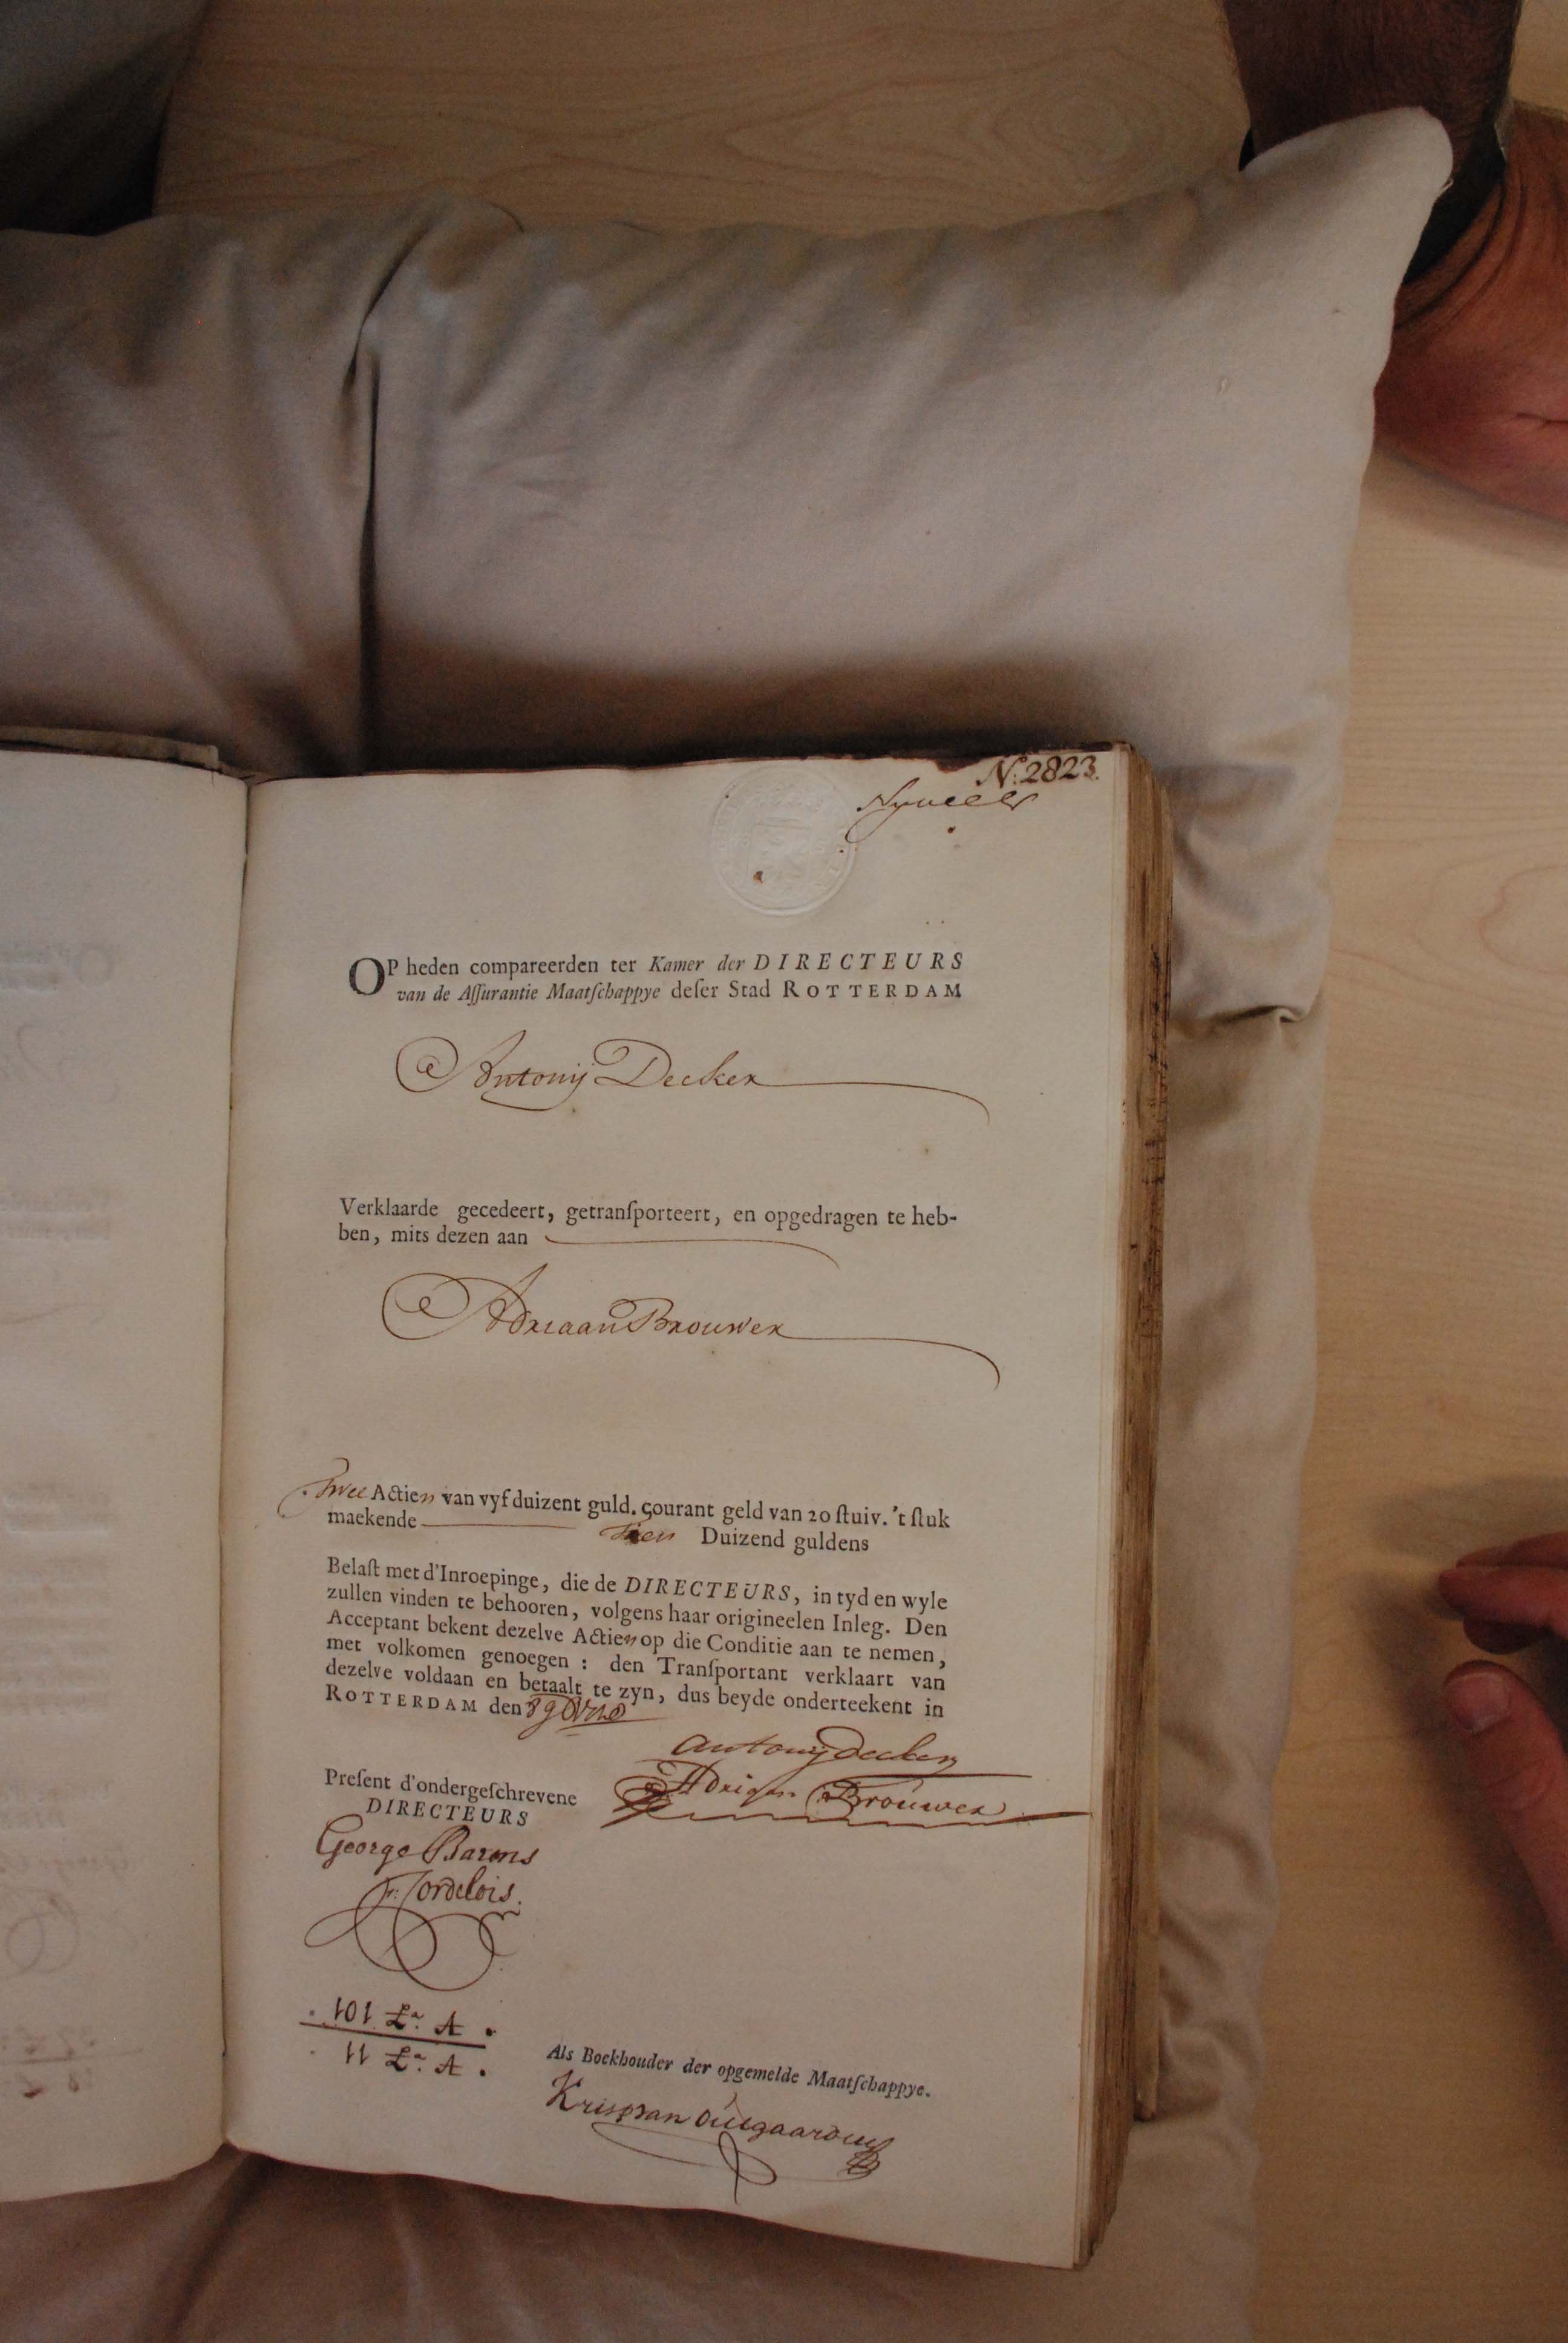 N: 2823.
OP heden compareerden ter Kamer der DIRECTEURS
van de Aſſurantie Maatſchappye deſer Stad ROTTERDAM
Antonij Decker
Verklaarde gecedeert, getranſporteert, en opgedragen te heb-
ben, mits dezen aan
Adriaan Brouwer
Twee Actien van vyf duizent guld. courant geld van 20 ſtuiv. 't ſtuk
maekende Tien Duizend guldens
Belaſt met d'Inroepinge, die de DIRECTEURS, in tyd en wyle
zullen vinden te behooren, volgens haar origineelen Inleg. Den
Acceptant bekent dezelve Actien op die Conditie aan te nemen,
met volkomen genoegen : den Tranſportant verklaart van
dezelve voldaan en betaalt te zyn, dus beyde onderteekent in
ROTTERDAM den
Antonij Decker
Adriaan Brouwer
Preſent d'ondergeſchrevene
DIRECTEURS
George Barons
101 La. A
11 La. A
Als Boekhouder der opgemelde Maatſchappye.